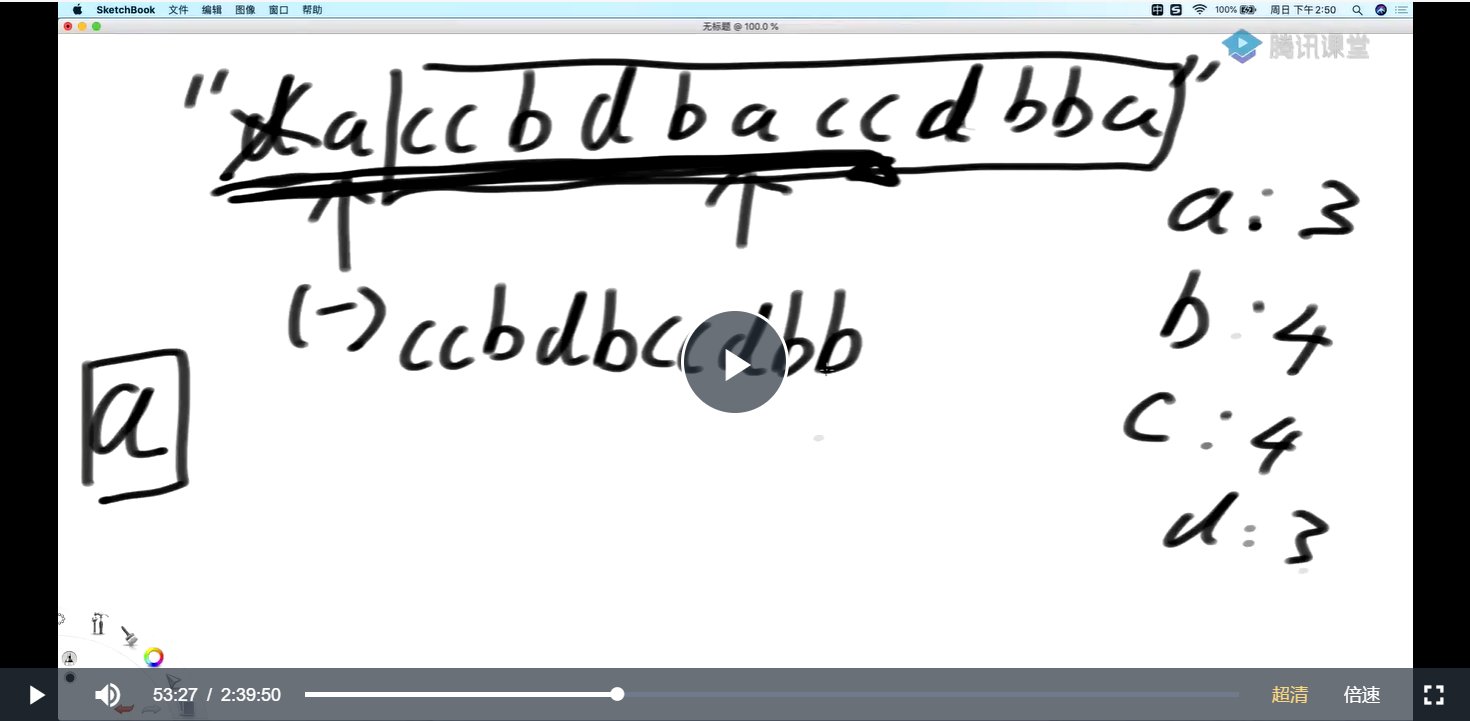 SketchBook 文件 编辑 图像 窗口 帮助 100% 周日 下午2:50
无标题 @ 100.0 %
腾讯课堂
"da|ccbdbaccdbba"
a:3
(-) ccbdbccdbb
b:4
a
c:4
d:3
53:27 / 2:39:50 超清 倍速